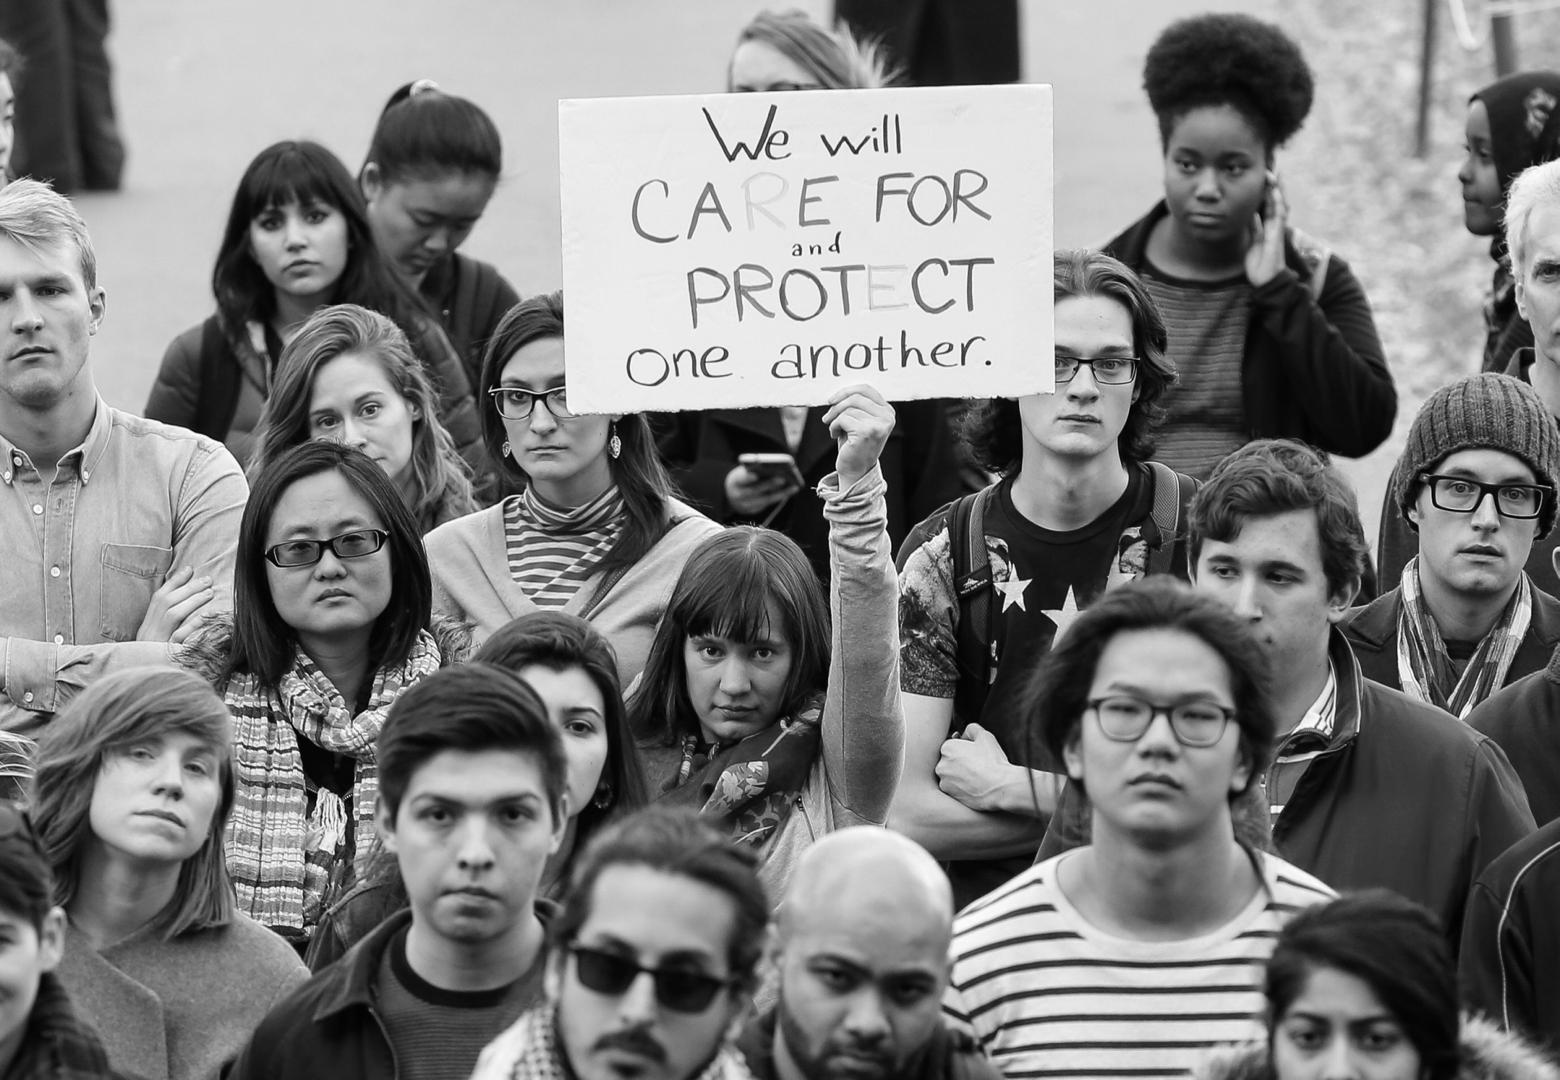 We will
CARE FOR
and
PROTECT
one another.